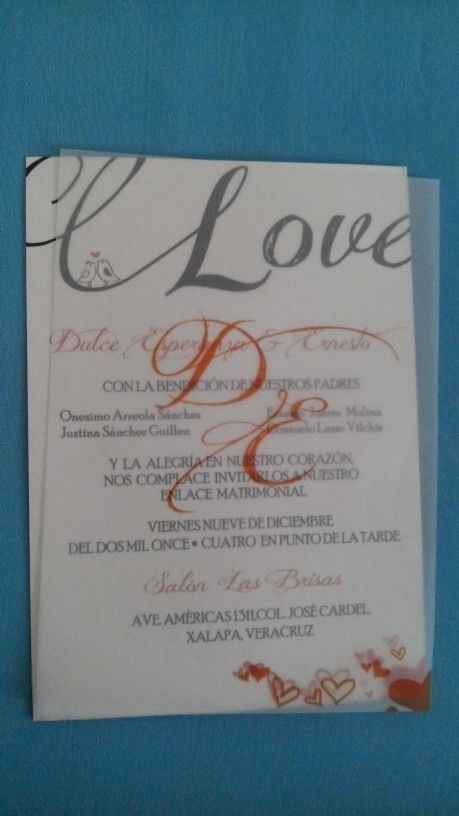 Love
Dulce Esperanza & Ernesto
D E
CON LA BENDICIÓN DE NUESTROS PADRES
Onesimo Arreola Sánchez
Justina Sánchez Guillen
Juárez Molina
Lasso Vilchis
Y LA ALEGRÍA EN NUESTRO CORAZÓN,
NOS COMPLACE INVITARLOS A NUESTRO
ENLACE MATRIMONIAL
VIERNES NUEVE DE DICIEMBRE
DEL DOS MIL ONCE • CUATRO EN PUNTO DE LA TARDE
Salón Las Brisas
AVE. AMÉRICAS 131 COL. JOSÉ CARDEL
XALAPA, VERACRUZ